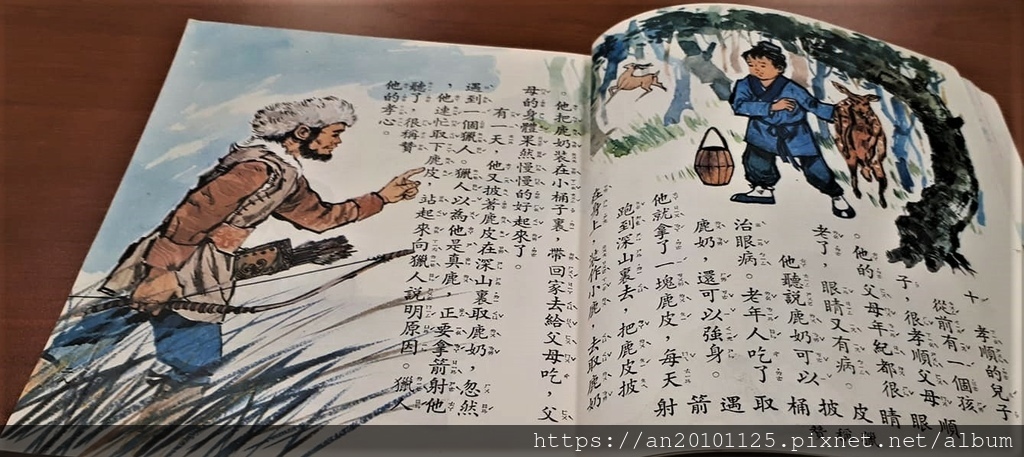 十、孝順的兒子
從前有一個孩
子，很孝順父母。
他的父母年紀都很
老了，眼睛又有病。
他聽說鹿奶可以
治眼病。老年人吃了
鹿奶，還可以強身。
他就拿了一塊鹿皮，每天
跑到深山裏去，把鹿皮披
在身上，裝作小鹿，去取鹿奶
。他把鹿奶裝在小桶子裏，帶回家去給父母吃，父
母的身體果然慢慢的好起來了。
有一天，他又披著鹿皮在深山裏取鹿奶，忽然
遇到一個獵人。獵人以為他是真鹿，正要拿箭射他
，他連忙取下鹿皮，站起來向獵人說明原因。獵人
聽了，很稱贊
他的孝心。
順
眼
睛
皮
披
桶
取
遇
箭
射
https://an20101125.pixnet.net/album